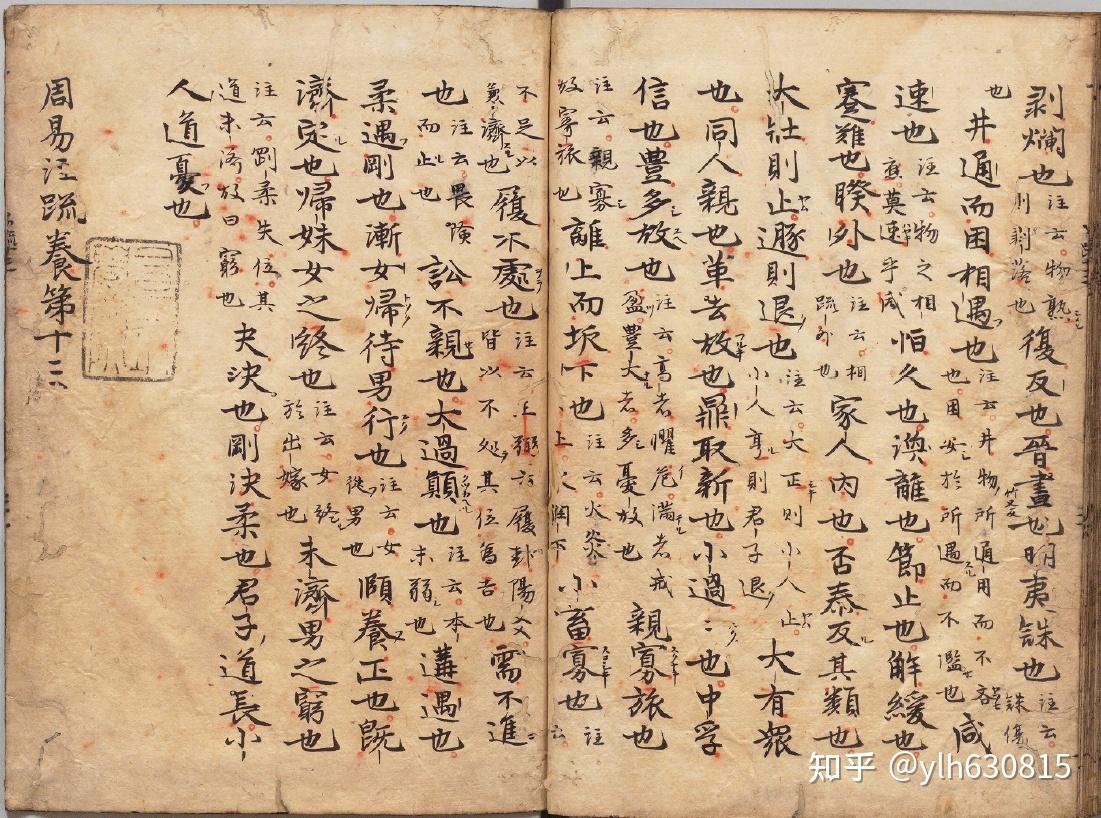 剥爛也注云物熟則剥落也復反也晉晝也明夷誅也注云誅傷
也井通而困相遇也注云井物所通用而不吝也困安於所遇而不濫也咸
速也注云物之相應莫速乎咸恒久也渙離也節止也解緩也
蹇難也睽外也注云相疏外也家人内也否泰反其類也
大壯則止遯則退也注云大正則小人止小人亨則君子退大有衆
也同人親也革去故也鼎取新也小過〻也中孚
信也豊多故也注云高者懼危滿者戒盈豊大者多憂故也親寡旅也
注云親寡故寄旅也離上而坎下也注云火炎上水潤下小畜寡也注云
不足以兼濟也履不處也注云王弼云履卦陽爻皆以不処其位爲吉也需不進
也注云畏険而止也訟不親也大過顛也注云本末弱也遘遇也
柔遇剛也漸女歸待男行也注云女從男也頤養正也既
濟定也歸妹女之終也注云女終於出嫁也未濟男之窮也
注云剛柔失位其道未濟故曰窮也夬決也剛決柔也君子道長小
人道憂也
周易注疏巻第十三
知乎 @ylh630815